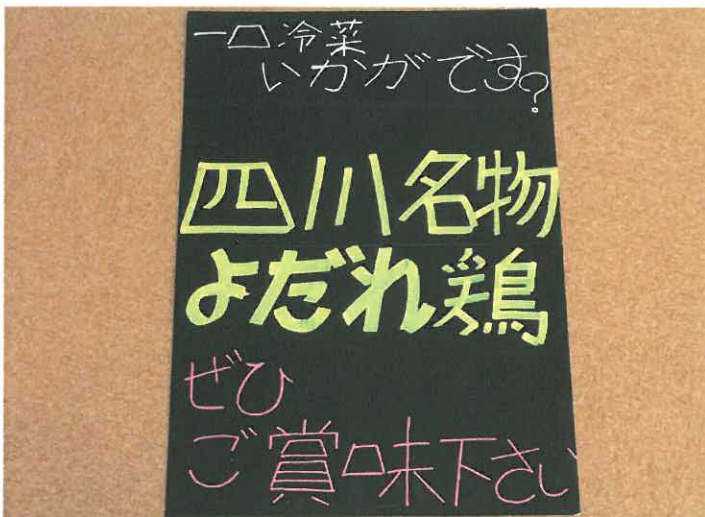 一口冷菜
いかがです?
四川名物
よだれ鶏
ぜひ
ご賞味下さい